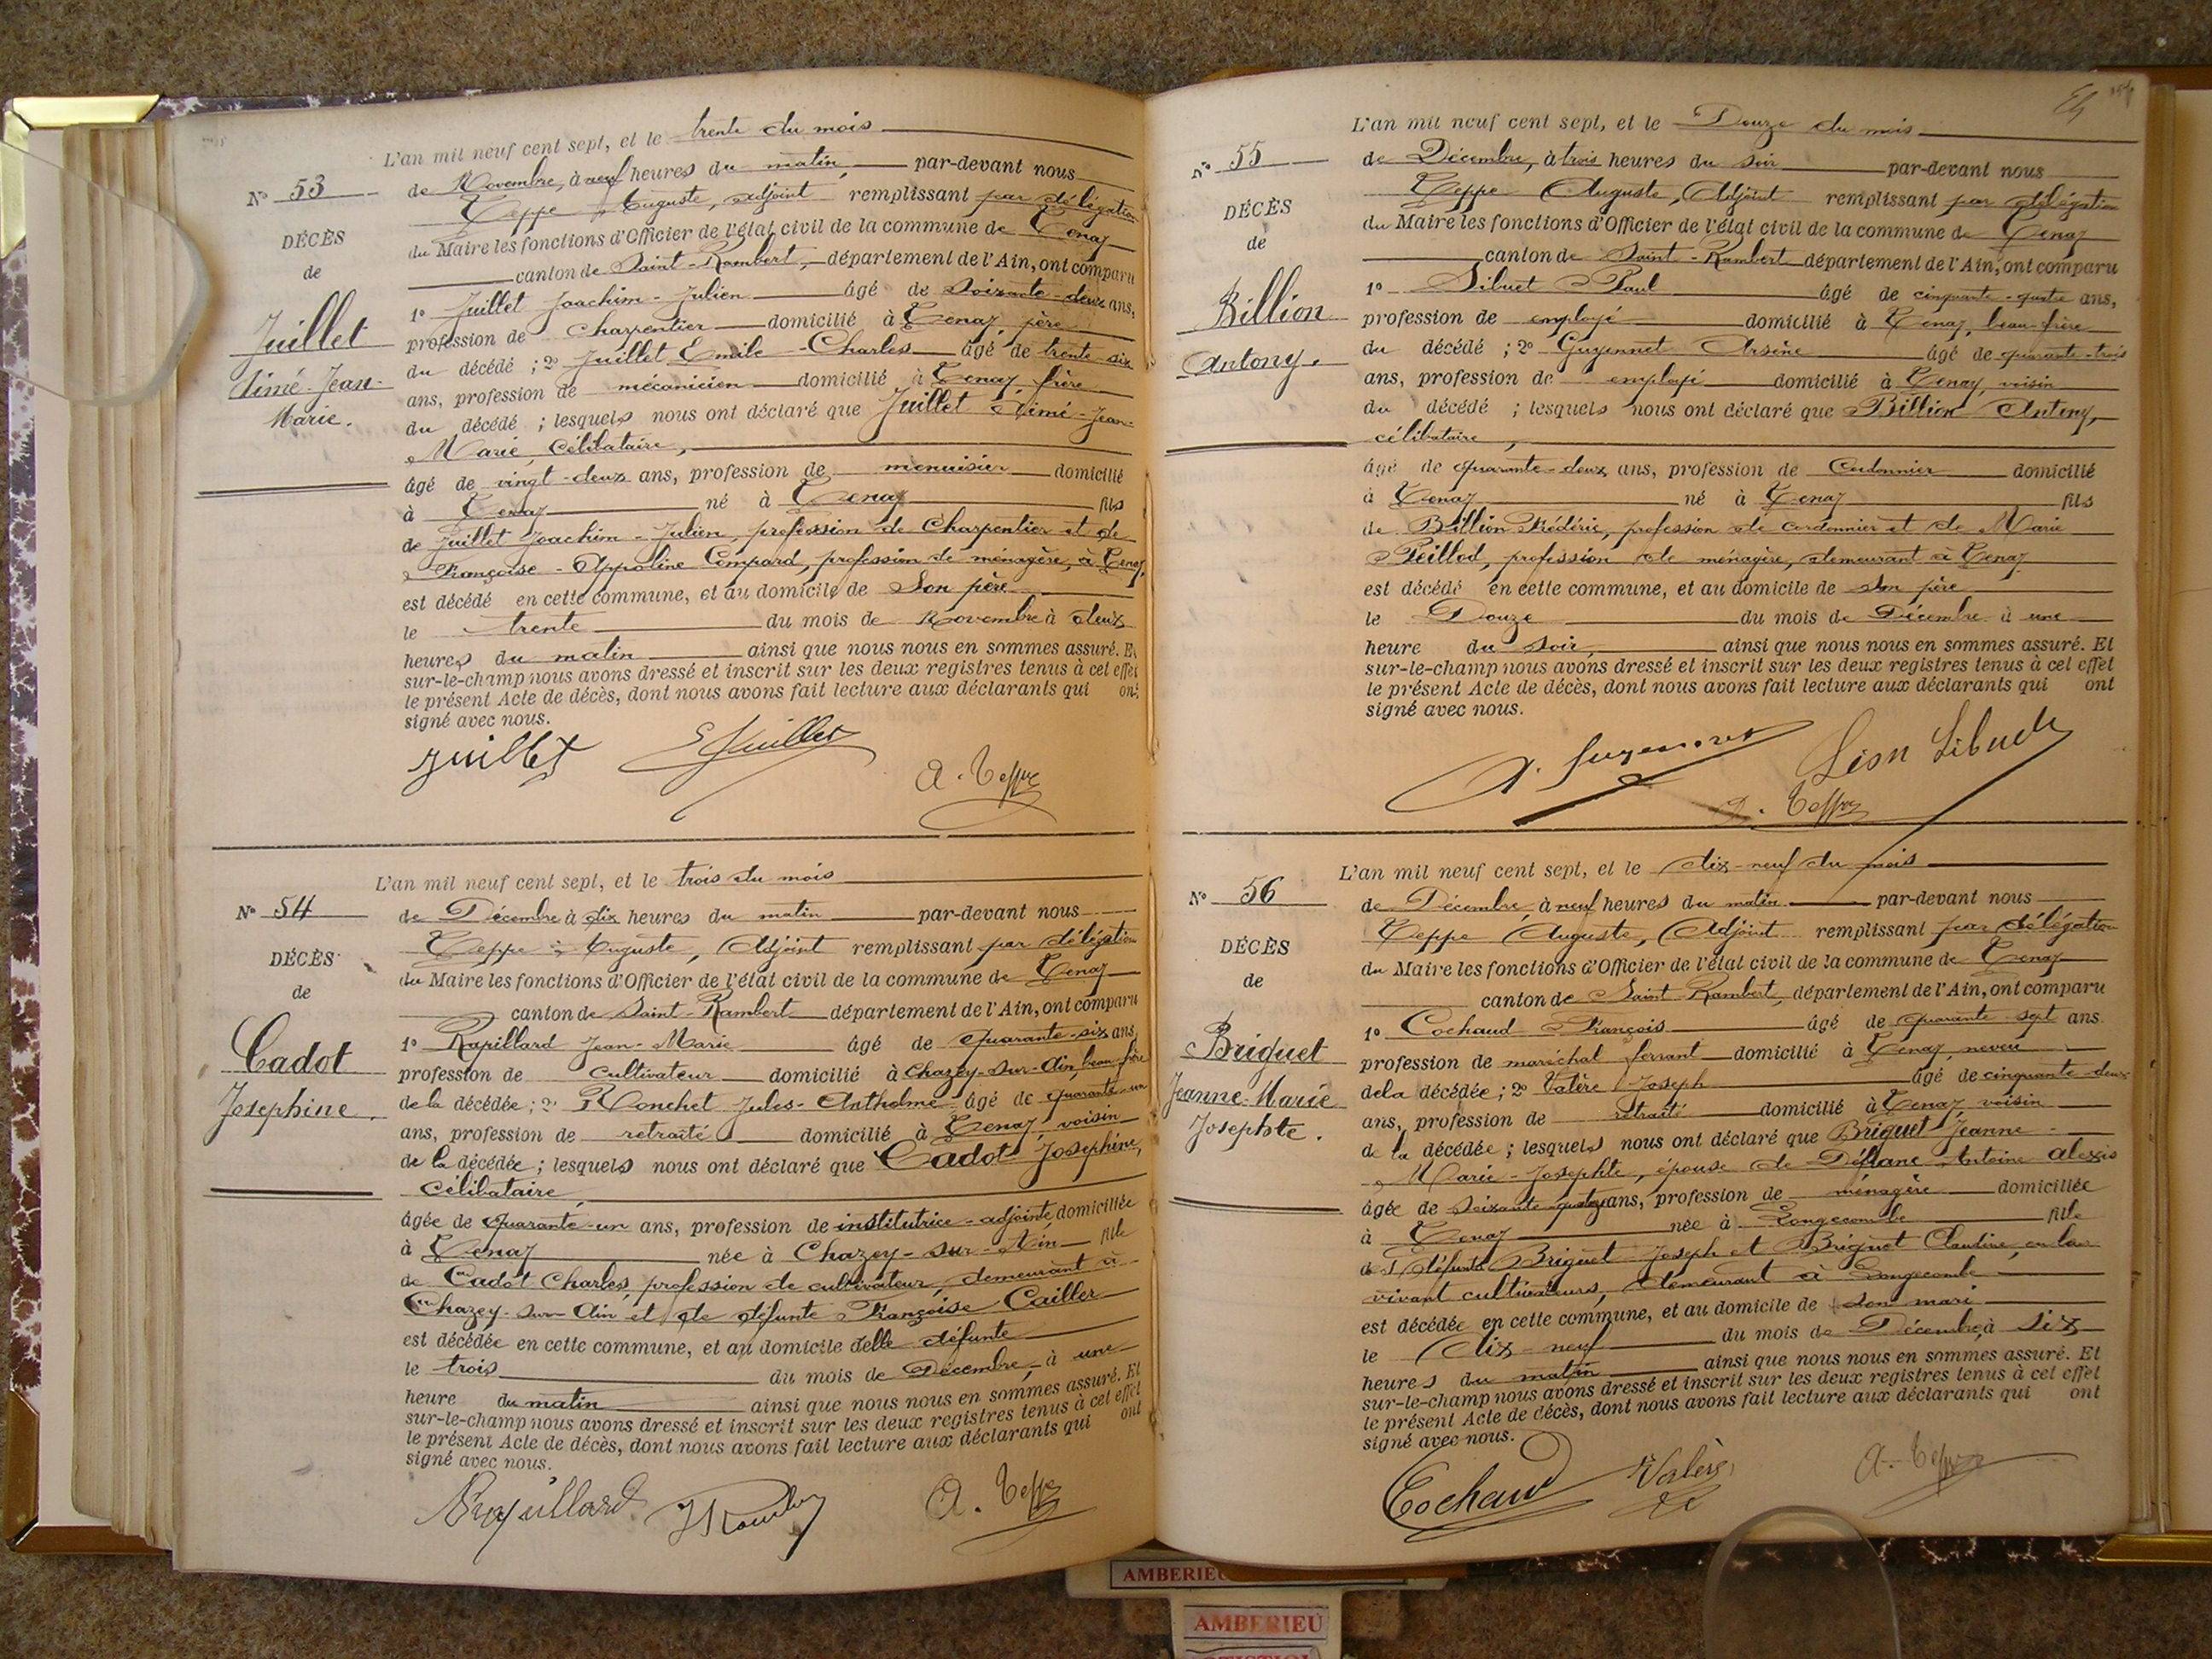 L'an mil neuf cent sept, et le trente du mois
N° 53
de Novembre, à neuf heures du matin, par-devant nous
Teppe Auguste, adjoint remplissant par délégation
DÉCÈS
du Maire les fonctions d'Officier de l'état civil de la commune de Tenay
de
canton de Saint-Rambert, département de l'Ain, ont comparu
1° Juillet Joachim-Julien âgé de soixante-deux ans,
Juillet
profession de charpentier domicilié à Tenay, père
du décédé ; 2° Juillet Emile-Charles âgé de trente-six
Aimé-Jean-
ans, profession de mécanicien domicilié à Tenay, frère
Marie.
du décédé ; lesquels nous ont déclaré que Juillet Aimé-Jean-
Marie, célibataire,
âgé de vingt-deux ans, profession de menuisier domicilié
à Tenay né à Tenay fils
de Juillet Joachim-Julien, profession de charpentier et de
Françoise-Appoline Compard, profession de ménagère, à Tenay,
est décédé en cette commune, et au domicile de son père
le trente du mois de Novembre à deux
heures du matin ainsi que nous nous en sommes assuré. Et
sur-le-champ nous avons dressé et inscrit sur les deux registres tenus à cet effet
le présent Acte de décès, dont nous avons fait lecture aux déclarants qui ont
signé avec nous.
Juillet E Juillet A. Teppe
L'an mil neuf cent sept, et le trois du mois
N° 54
de Décembre à dix heures du matin par-devant nous
Teppe Auguste, Adjoint remplissant par délégation
DÉCÈS
du Maire les fonctions d'Officier de l'état civil de la commune de Tenay
de
canton de Saint-Rambert département de l'Ain, ont comparu
1° Rapillard Jean-Marie âgé de quarante-six ans,
Cadot
profession de cultivateur domicilié à Chazey-sur-Ain, beau-frère
de la décédée ; 2° Ronchet Jules-Anthelme âgé de quarante-un
Josephine.
ans, profession de retraité domicilié à Tenay, voisin
de la décédée ; lesquels nous ont déclaré que Cadot Josephine,
célibataire,
âgée de quarante-un ans, profession de institutrice-adjointe, domiciliée
à Tenay née à Chazey-sur-Ain fille
de Cadot Charles, profession de cultivateur, demeurant à
Chazey-sur-Ain et de défunte Françoise Cailler
est décédée en cette commune, et au domicile de la défunte
le trois du mois de Décembre, à une
heure du matin ainsi que nous nous en sommes assuré. Et
sur-le-champ nous avons dressé et inscrit sur les deux registres tenus à cet effet
le présent Acte de décès, dont nous avons fait lecture aux déclarants qui ont
signé avec nous.
Rapillard A. Teppe
L'an mil neuf cent sept, et le Douze du mois
N° 55
de Décembre, à trois heures du soir par-devant nous
Teppe Auguste, Adjoint remplissant par délégation
DÉCÈS
du Maire les fonctions d'Officier de l'état civil de la commune de Tenay
de
canton de Saint-Rambert département de l'Ain, ont comparu
1° Sibuet Paul âgé de cinquante-quatre ans,
Billion
profession de employé domicilié à Tenay, beau-frère
du décédé ; 2° Guyennet Arsène âgé de quarante-trois
Antony.
ans, profession de employé domicilié à Tenay, voisin
du décédé ; lesquels nous ont déclaré que Billion Antony,
célibataire,
âgé de quarante-deux ans, profession de Cordonnier domicilié
à Tenay né à Tenay fils
de Billion Frédéric, profession de cordonnier et de Marie
Peillod, profession de ménagère, demeurant à Tenay
est décédé en cette commune, et au domicile de son père
le Douze du mois de Décembre à une
heure du soir, ainsi que nous nous en sommes assuré. Et
sur-le-champ nous avons dressé et inscrit sur les deux registres tenus à cet effet
le présent Acte de décès, dont nous avons fait lecture aux déclarants qui ont
signé avec nous.
A. Teppe
L'an mil neuf cent sept, et le dix-neuf du mois
N° 56
de Décembre, à neuf heures du matin par-devant nous
Teppe Auguste, Adjoint remplissant par délégation
DÉCÈS
du Maire les fonctions d'Officier de l'état civil de la commune de Tenay
de
canton de Saint-Rambert, département de l'Ain, ont comparu
1° Cochaud François âgé de quarante-sept ans
Briguet
profession de maréchal ferrant domicilié à Tenay, neveu
de la décédée ; 2° Valère Joseph âgé de cinquante-deux
Jeanne-Marie
ans, profession de retraité domicilié à Tenay, voisin
Josephte.
de la décédée ; lesquels nous ont déclaré que Briguet Jeanne-
Marie-Josephte, épouse de Antoine Alexis
âgée de soixante- ans, profession de ménagère domiciliée
à Tenay née à Longecombe fille
de défunts Briguet Joseph et Briguet Claudine, en leur
vivant cultivateurs, demeurant à Longecombe
est décédée en cette commune, et au domicile de son mari
le dix-neuf du mois de Décembre, à six
heures du matin ainsi que nous nous en sommes assuré. Et
sur-le-champ nous avons dressé et inscrit sur les deux registres tenus à cet effet
le présent Acte de décès, dont nous avons fait lecture aux déclarants qui ont
signé avec nous.
Cochaud Valère A. Teppe
AMBERIEU
AMBERIEU